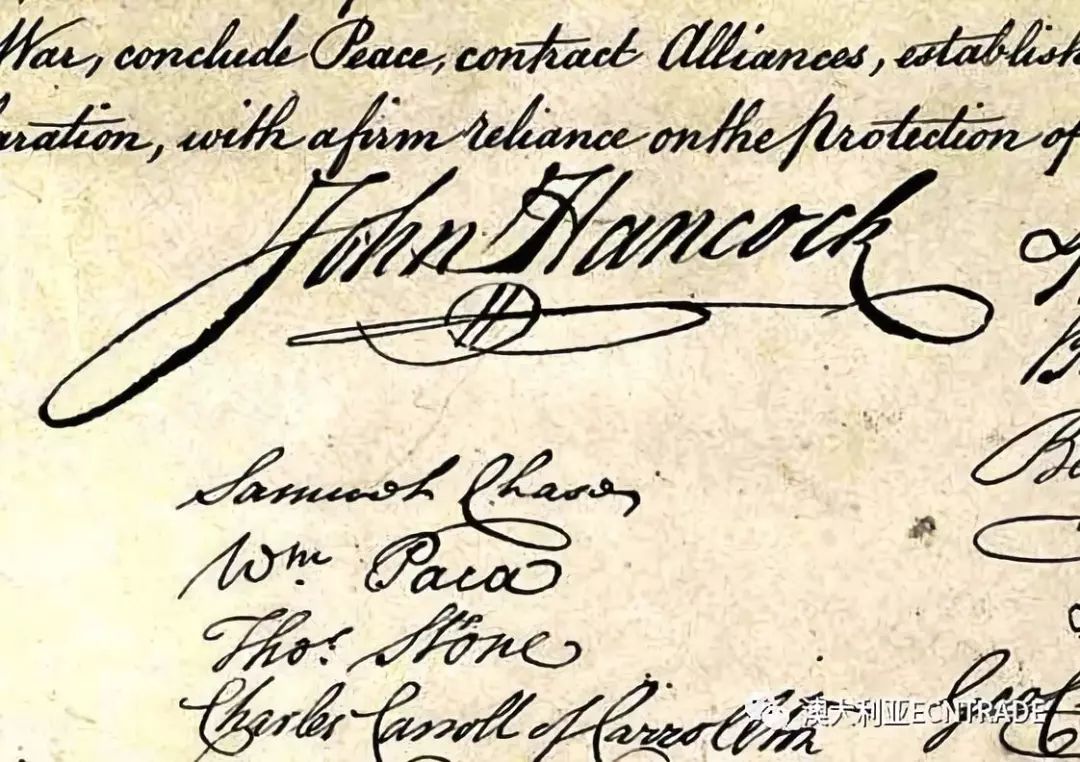 War, conclude Peace, contract Alliances, establish
aration, with a firm reliance on the Protection of
John Hancock
Samuel Chase
Wm Paca
Thos. Stone
Charles Carroll of Carrollton
澳大利亚ECNTRADE